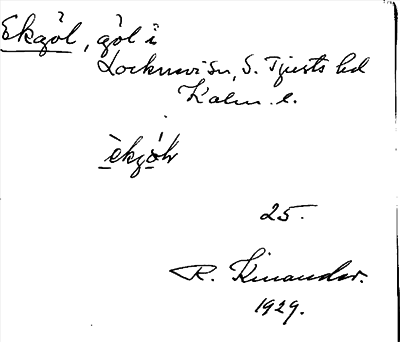 Ekgöl, göl i
Locknevi sn, S. Tjusts hd
Kalm. l.
èkgöl
25.
R. Kinander.
1929.